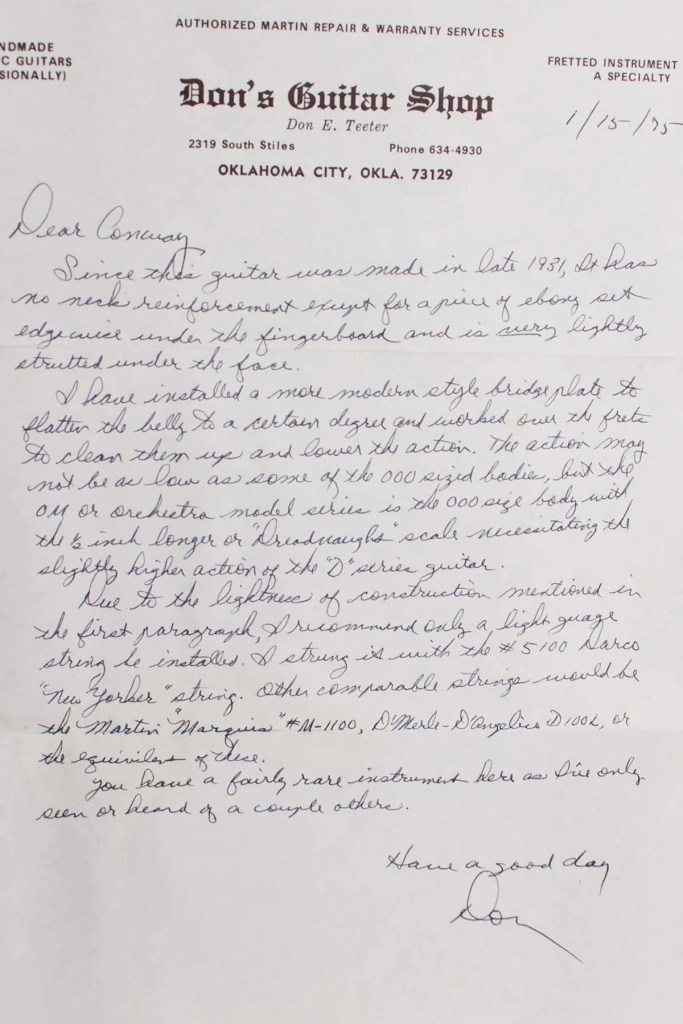 AUTHORIZED MARTIN REPAIR & WARRANTY SERVICES
NDMADE
C GUITARS
SIONALLY)
FRETTED INSTRUMENT
A SPECIALTY
Don's Guitar Shop
Don E. Teeter
2319 South Stiles Phone 634-4930
OKLAHOMA CITY, OKLA. 73129
1/15/75
Dear Conway
Since this guitar was made in late 1931, It has
no neck reinforcement except for a piece of ebony set
edgewise under the fingerboard and is very lightly
strutted under the face.
I have installed a more modern style bridge plate to
flatten the belly to a certain degree and worked over the frets
to clean them up and lower the action. The action may
not be as low as some of the 000 sized bodies, but the
OM or orchestra model series is the 000 size body with
the ½ inch longer or "Dreadnaughs" scale necessitating the
slightly higher action of the "D" series guitar.
Due to the lightness of construction mentioned in
the first paragraph, I recommend only a light guage
string be installed. I strung it with the #5100 Darco
"New Yorker" string. Other comparable strings would be
the Martin "Marquis" #M-1100, D'Merle-D'Angelico D100L, or
the equivilent of these.
You have a fairly rare instrument here as I've only
seen or heard of a couple others.
Have a good day
Don